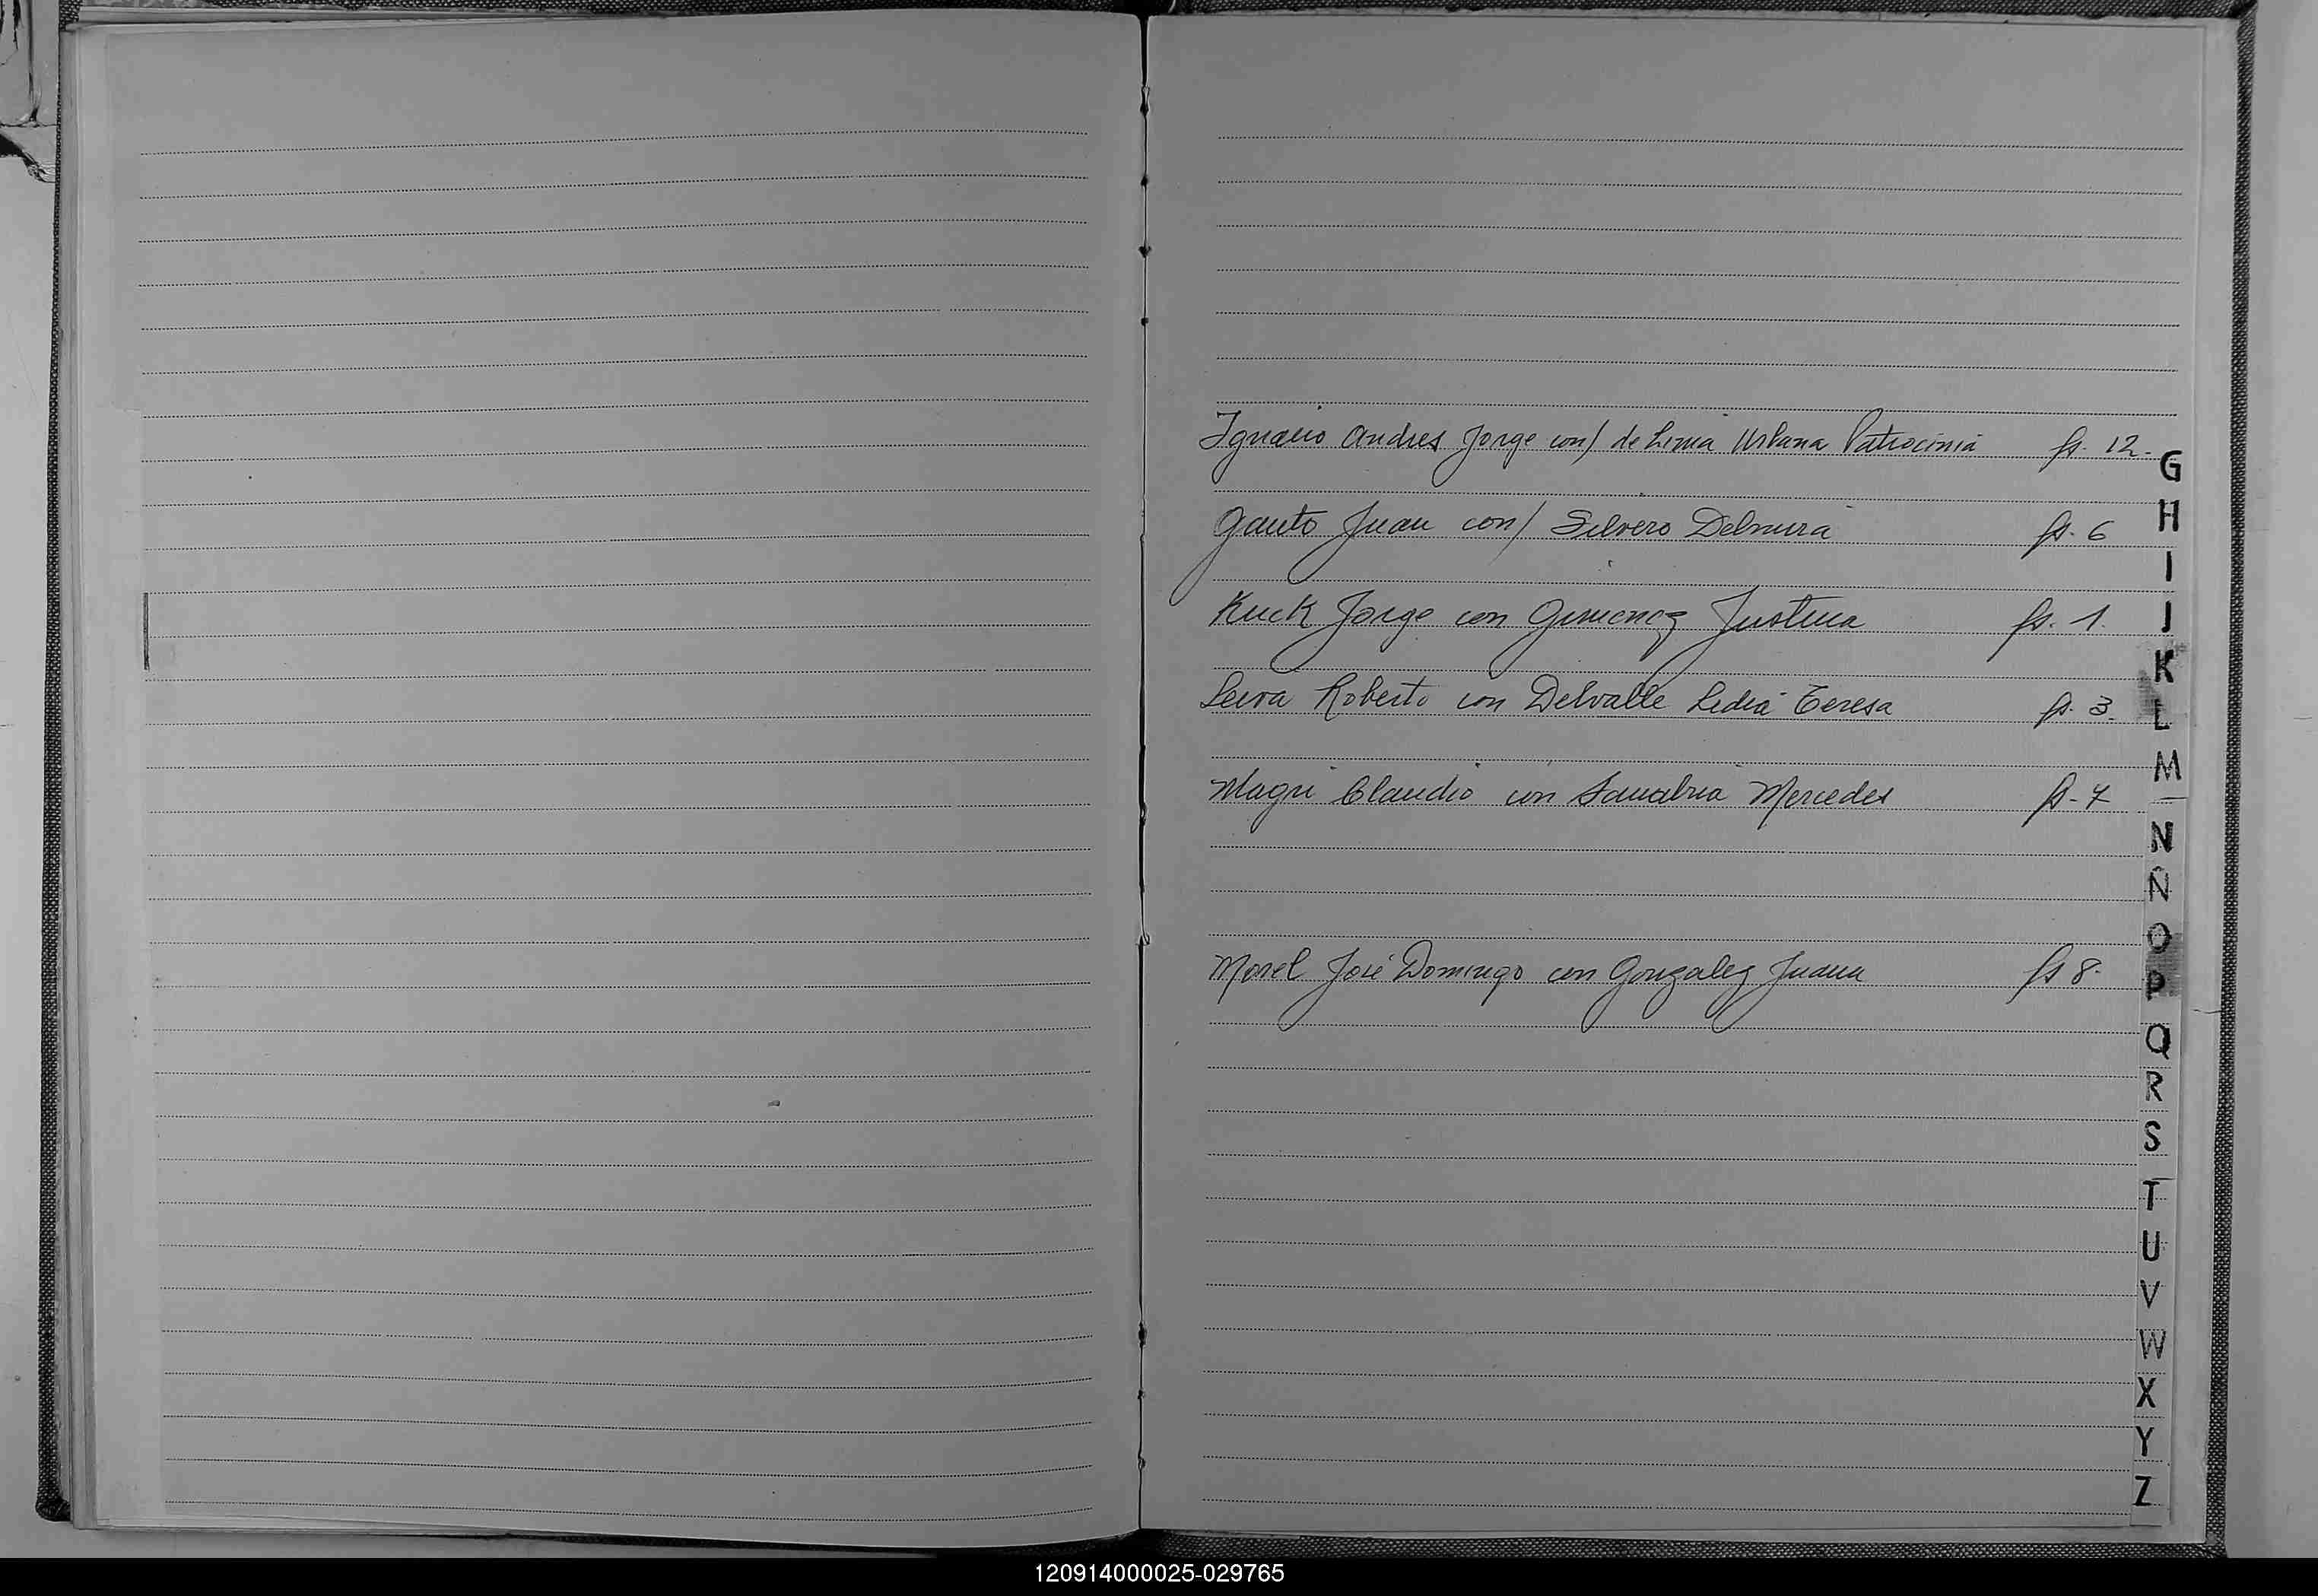 Ignacio Andres Jorge con/ de Lima Urbana Patrocinia fs. 12.
G
Gauto Juan con/ Silvero Delmira fs. 6
H
I
Kuck Jorge con Gimenez Justina fs. 1.
J
K
Leiva Roberto con Delvalle Lidia Teresa fs. 3.
L
M
Magri Claudio con Sanabria Mercedes fs. 7
N
Ñ
O
Morel José Domingo con Gonzalez Juana fs 8.
P
Q
R
S
T
U
V
W
X
Y
Z
120914000025-029765